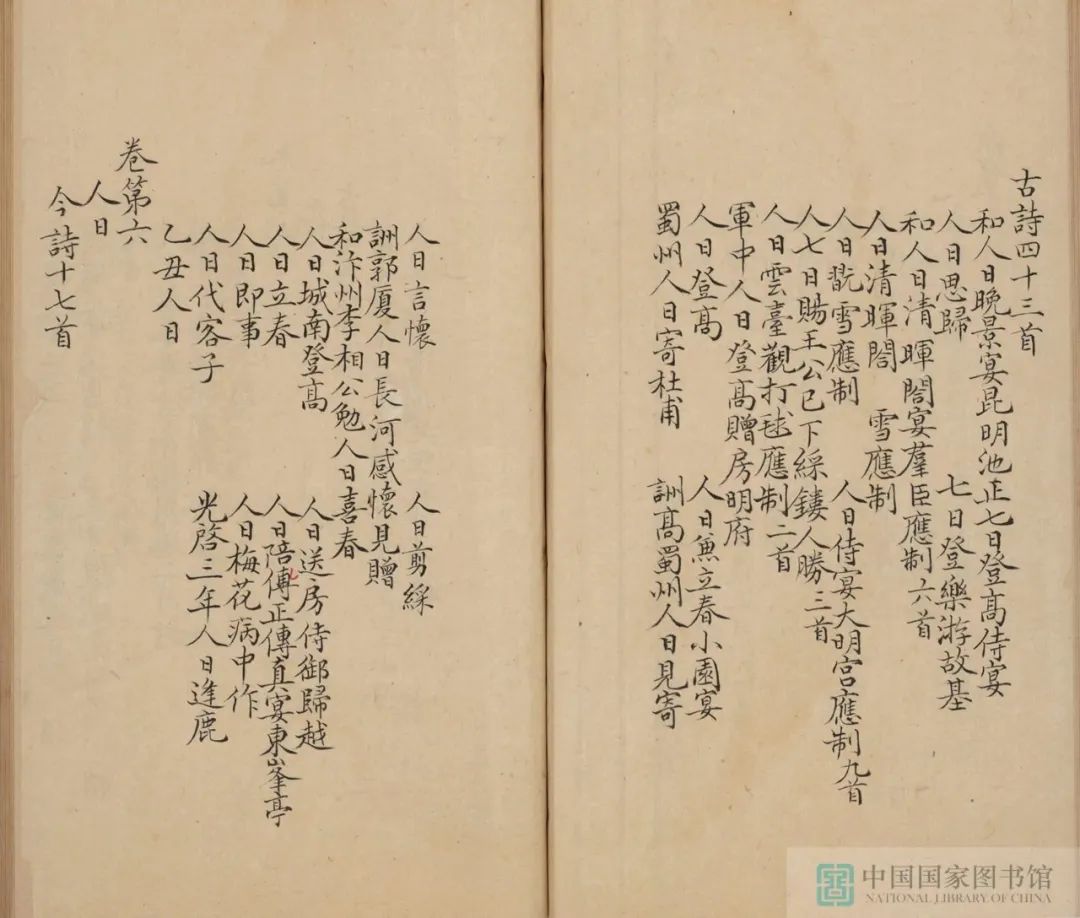 古詩四十三首
和人日晚景宴昆明池正七日登高侍宴
人日思歸 七日登樂游故基
和人日清暉閣宴羣臣應制六首
人日清暉閣 雪應制
人日翫雪應制 人日侍宴大明宮應制九首
人七日賜王公已下綵鏤人勝三首
人日雲臺觀打毬應制二首
軍中人日登高贈房明府
人日登高 人日兼立春小園宴
蜀州人日寄杜甫 詶高蜀州人日見寄
人日言懷 人日剪綵
詶郭厦人日長河感懷見贈
和汴州李相公勉人日喜春
人日城南登高 人日送房侍御歸越
人日立春 人日陪傅正傳真宴東峯亭
人日即事 人日梅花病中作
人日代客子 光啓三年人日逢鹿
乙丑人日
卷第六
人日
今詩十七首
中国国家图书馆
NATIONAL LIBRARY OF CHINA